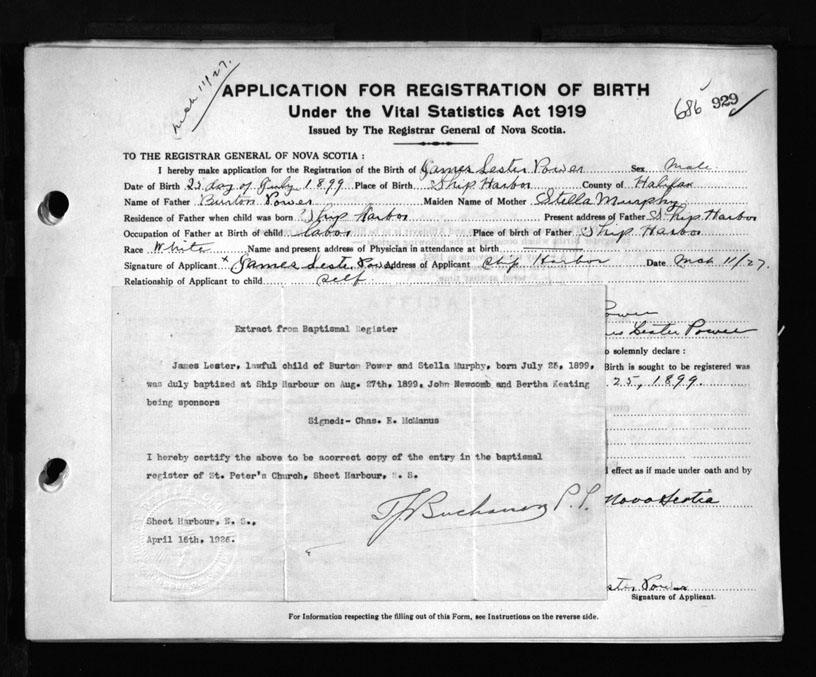 Mch 11/27.
APPLICATION FOR REGISTRATION OF BIRTH
686 929
Under the Vital Statistics Act 1919
Issued by The Registrar General of Nova Scotia.
TO THE REGISTRAR GENERAL OF NOVA SCOTIA:
I hereby make application for the Registration of the Birth of James Lester Power Sex Male
Date of Birth 25 day of July 1899 Place of Birth Ship Harbor County of Halifax
Name of Father Burton Power Maiden Name of Mother Stella Murphy
Residence of Father when child was born Ship Harbor Present address of Father Ship Harbor
Occupation of Father at Birth of child labor Place of birth of Father Ship Harbor
Race White Name and present address of Physician in attendance at birth
Signature of Applicant x James Lester Power Address of Applicant Ship Harbor Date Mch 11/27.
Relationship of Applicant to child self
Power
Extract from Baptismal Register
es Lester Power
o solemnly declare :
James Lester, lawful child of Burton Power and Stella Murphy, born July 25, 1899,
Birth is sought to be registered was
was duly baptized at Ship Harbour on Aug. 27th, 1899, John Newcomb and Bertha Keating
25, 1899.
being sponsors
Signed:- Chas. E. McManus
I hereby certify the above to be acorrect copy of the entry in the baptismal
l effect as if made under oath and by
register of St. Peter's Church, Sheet Harbour, N. S.
Nova Scotia
T J Buchanan P. P.
Sheet Harbour, N. S.,
April 16th, 1926.
ster Power
Signature of Applicant.
For Information respecting the filling out of this Form, see Instructions on the reverse side.